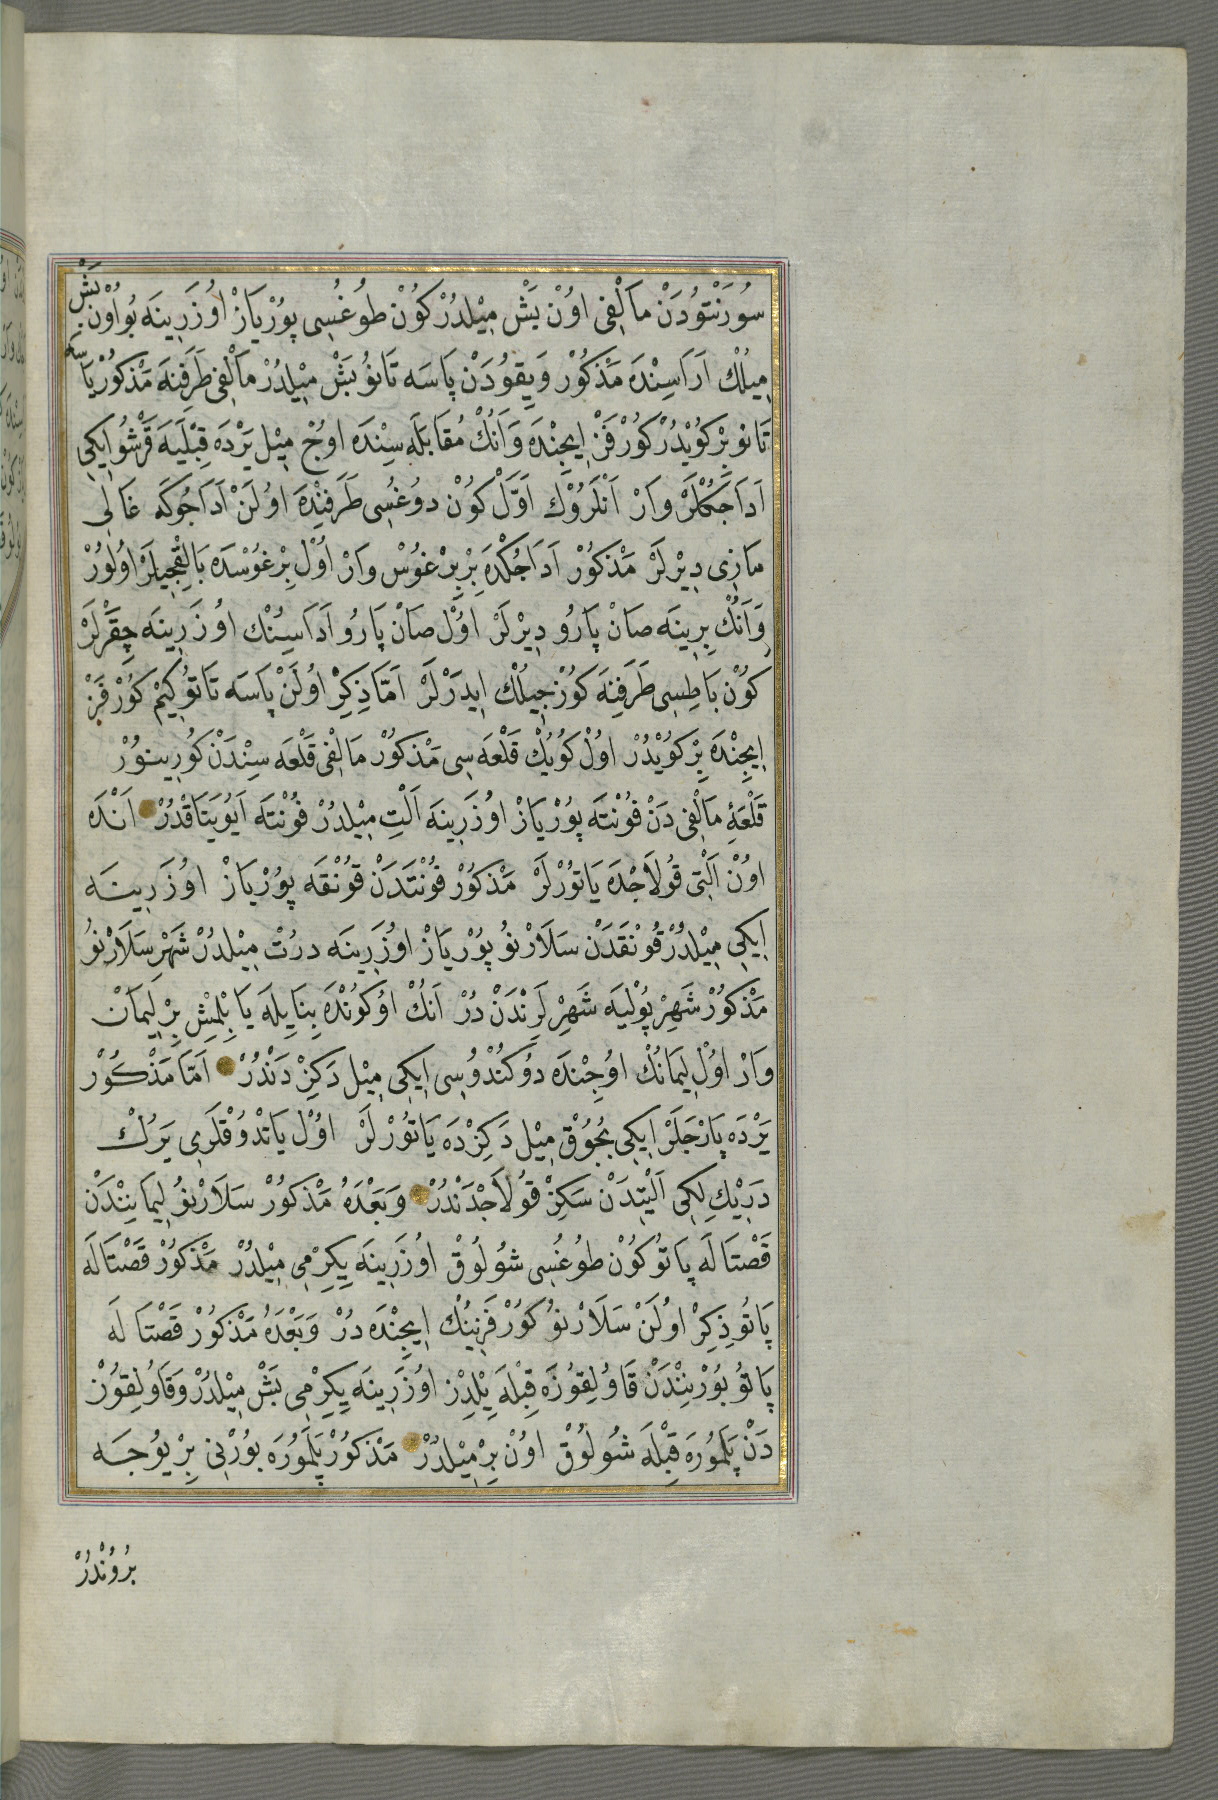 سُورَنْتُودَنْ مَالْفِى اوُنْ بَشْ مِيْلدُرْ كُونْ طُوغُسِى پُورْيَازْ اوُزَرِينَه بُو اوُنْ بَشْ
مِيلُكْ اَرَاسِنْدَه مَذْكُورْ وَيِقُودَنْ پَاسَه تَانوُ بَشْ مِيْلِدُرْ مَالْفِى طَرَفِنَه مَذْكُورْ پَاسَه
تَانوُ بِرْ كُوْيْدُرْ كُورْفَزْ اِيچِنْدَه وَاَنُكْ مُقَابَلَه سِنْدَه اوُچْ مِيْل يَرْدَه قِبْلَيَه قَرْشُو اِيكِى
اَدَاجَكْلَرْ وَارْ اَنْلَرُوْكْ اَوَّلْ كُونْ دوُغُسِى طَرَفِنْدَه اوُلَنْ اَدَاجُوكَه غَالِى
مَازِى دِيْرلَرْ مَذْكُورْ اَدَاجُكْدَه بِرْ بِرْغُوسْ وَارْ اوُلْ بِرْغُوسْدَه بَالِقْجِيلَرْ اوُلوُرْ
وَاَنُكْ بِرِينَه صَانْ پَارُو دِيْرلَرْ اوُلْ صَانْ پَارُو اَدَاسِنُكْ اوُزَرِينَه چِقَرْلَرْ
كُونْ بَاطِسِى طَرَفِنَه كُوزْجِيلُكْ اِيدَرْلَرْ اَمَّا ذِكِرْ اوُلَنْ پَاسَه تَاتوُ كِيمْ كُورْفَزْ
اِيچِنْدَه بِرْ كُوْيْدُرْ اوُلْ كُويُكْ قَلْعَه سِى مَذْكُورْ مَالْفِى قَلْعَه سِنْدَنْ كُورِينوُرْ
قَلْعَۀِ مَالْفِى دَنْ فوُنْتَه پُورْيَازْ اوُزَرِينَه اَلْتِ مِيْلِدُرْ فوُنْتَه اَيُو يَتَاقْدُرْ اَنْدَه
اوُنْ اَلْتِى قوُلَاجْدَه يَاتوُرْلَرْ مَذْكُورْ فوُنْتَدَنْ قوُنْقَه پُورْيَازْ اوُزَرِينَه
اِيكِى مِيْلِدُرْ قوُنْقَدَنْ سَلَارْنوُ پُورْيَازْ اوُزَرِينَه دُرْتْ مِيْلِدُرْ شَهْرِ سَلَارْنوُ
مَذْكُورْ شَهِرْ پُولْيَه شَهِرْلَرِنْدَنْ دُرْ اَنُكْ اوُكوُنْدَه بِنَايِلَه يَاپِلْمِشْ بِرْ لِيمَانْ
وَارْ اوُلْ لِيمَانُكْ اوُچِنْدَه دُوكُنْدوُسِى اِيكِى مِيْل دَكِزْدَنْدُرْ اَمَّا مَذْكُورْ
يَرْدَه پَارْجَلَرْ اِيكِى بُچوُقْ مِيْل دَكِزْدَه يَاتوُرْلَرْ اوُلْ يَاتْدوُقْلَرِى يَرُكْ
دَرِيْكِلِكِى اَلْتِّدَنْ سَكِزْ قوُلَاجْدَنْدُرْ وَبَعْدَهُ مَذْكُورْ سَلَارْنوُ لِيمَانِنْدَنْ
قَصْتَالَه پَاتوُ كُونْ طُوغُسِى شُولُوقْ اوُزَرِينَه يِكِرْمِى مِيْلِدُرْ مَذْكُورْ قَصْتَالَه
پَاتُو ذِكِرْ اوُلَنْ سَلَارْنوُ كُورْفَزِنِنُكْ اِيچِنْدَه دُرْ وَبَعْدَهُ مَذْكُورْ قَصْتَالَه
پَاتُو بُورْنِنْدَنْ قَاوُلِقوُزَه قِبْلَه يِلْدِزْ اوُزَرِينَه يِكِرْمِى بَشْ مِيْلِدُرْ وَقَاوُلِقوُزْ
دَنْ پَلْمُورَه قِبْلَه شُولُوقْ اوُنْ بِرْ مِيْلِدُرْ مَذْكُورْ پَلْمُورَه بُورْنِى بِرْ يُوجَه
بُرُوُنْدُرْ